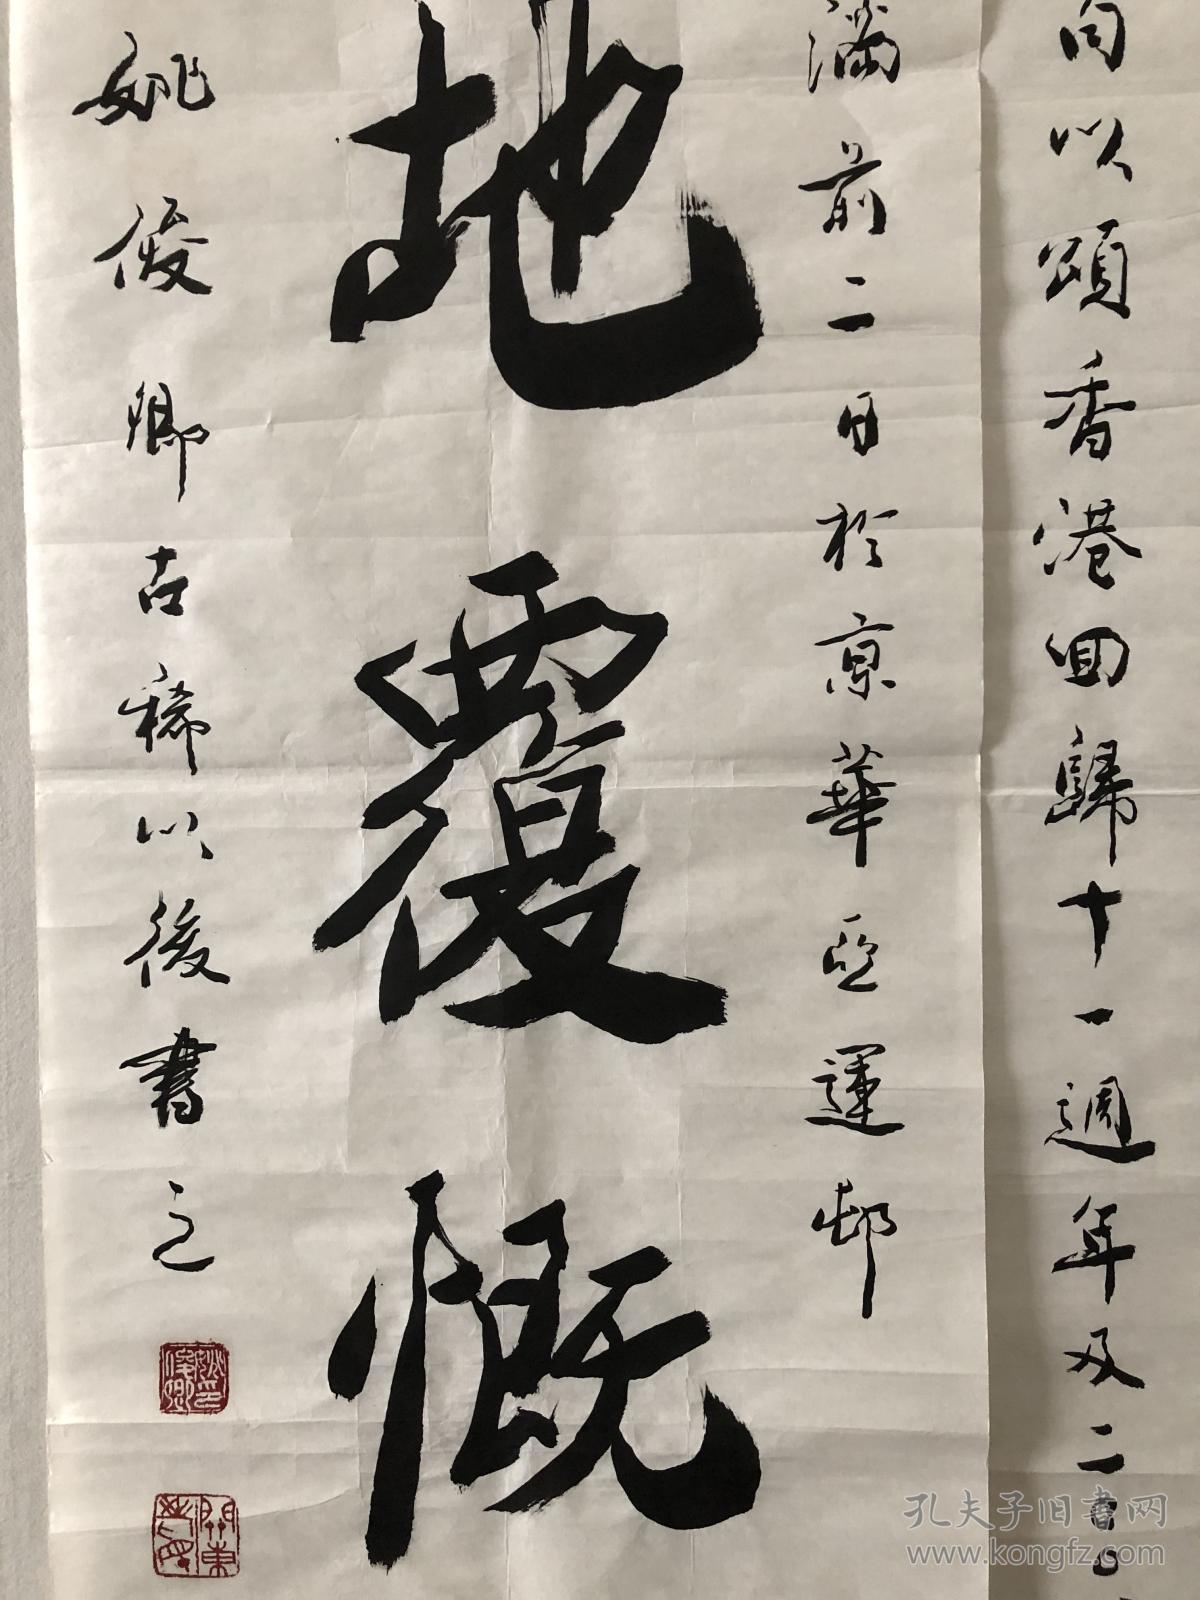 句以頌香港回歸十一週年及二〇〇
滿前二日於京華亞運邨
地覆慨
姚俊卿古稀以後書之
姚俊卿印
關東
孔夫子旧书网
www.kongfz.com